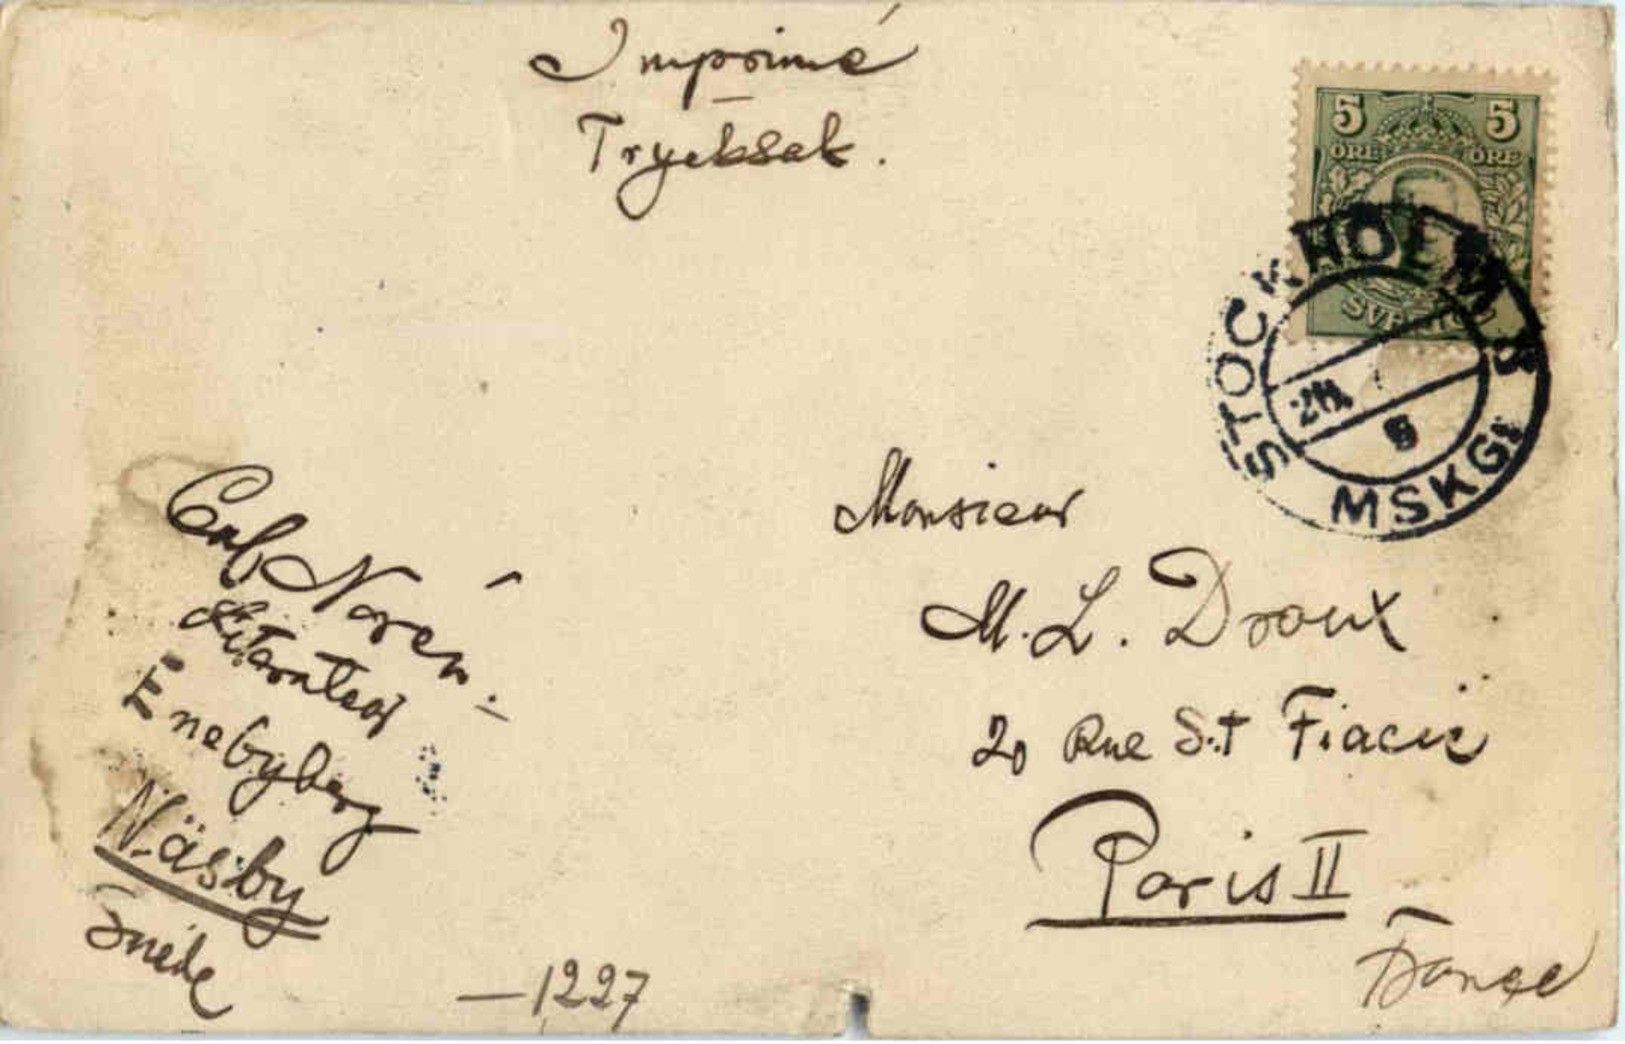 Imprimé
Trycksak.
5 5
ÖRE ÖRE
SVERIGE
STOCKHOLM 8
MSKG
Monsieur
M. L. Droux
20 Rue S.t Fiacre
Paris II
France
Carl Norén.
Enebyberg
Näsby
Suède
—1227